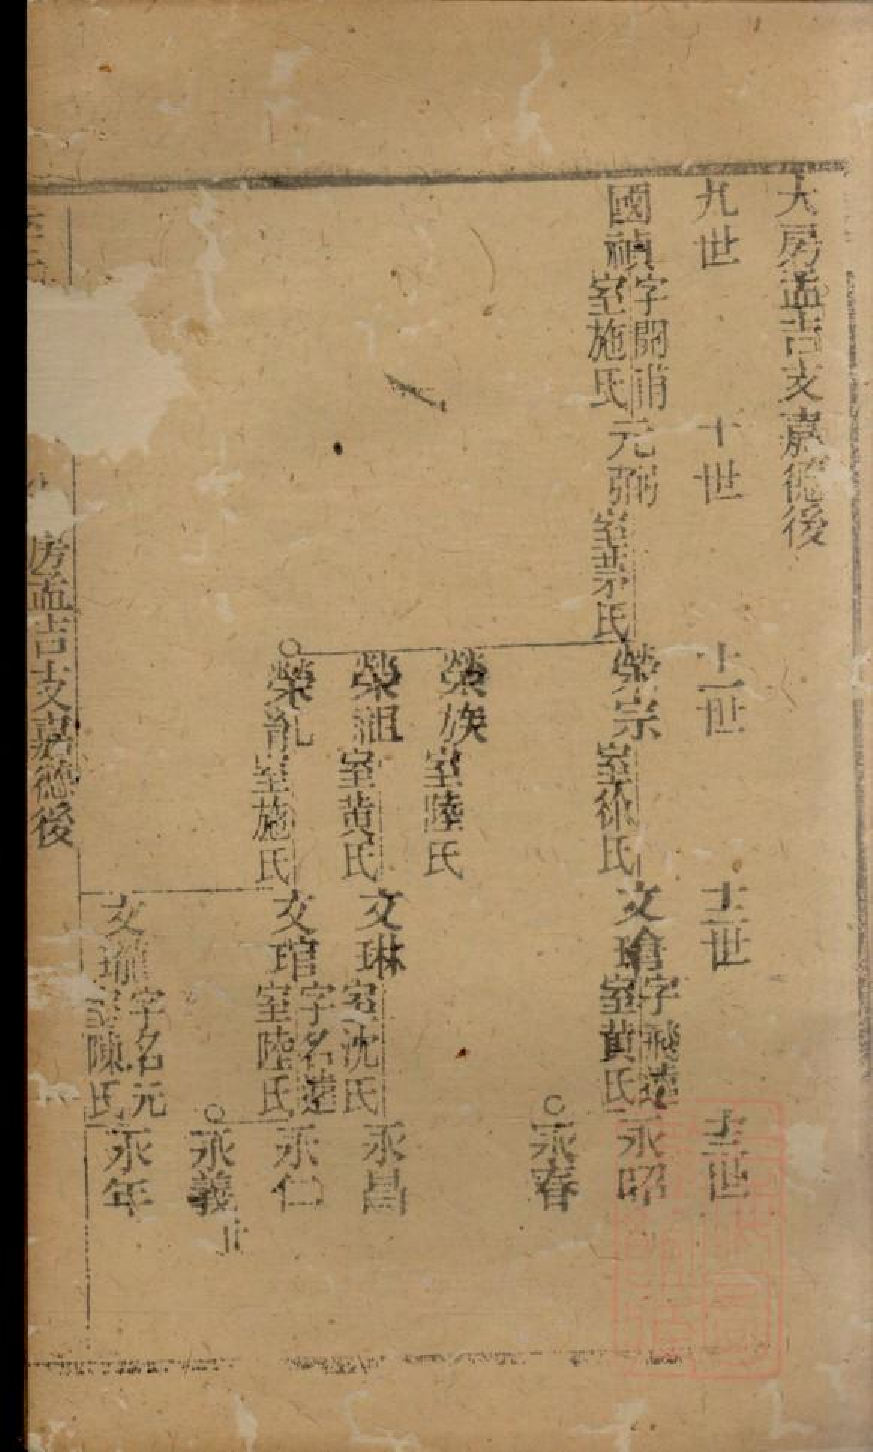 大房孟吉支嘉德後
九世
十世
十一世
十二世
十三世
國禎 字開甫 室施氏
元弼 室茅氏
榮宗 室徐氏
文瑲 字飛遠 室黃氏
永昭
永春
榮族 室陸氏
榮祖 室黃氏
文琳 室沈氏
永昌
榮胤 室施氏
文琯 字名遠 室陸氏
永仁
永義
文瓏 字名元 室陳氏
永年
房孟吉支嘉德後